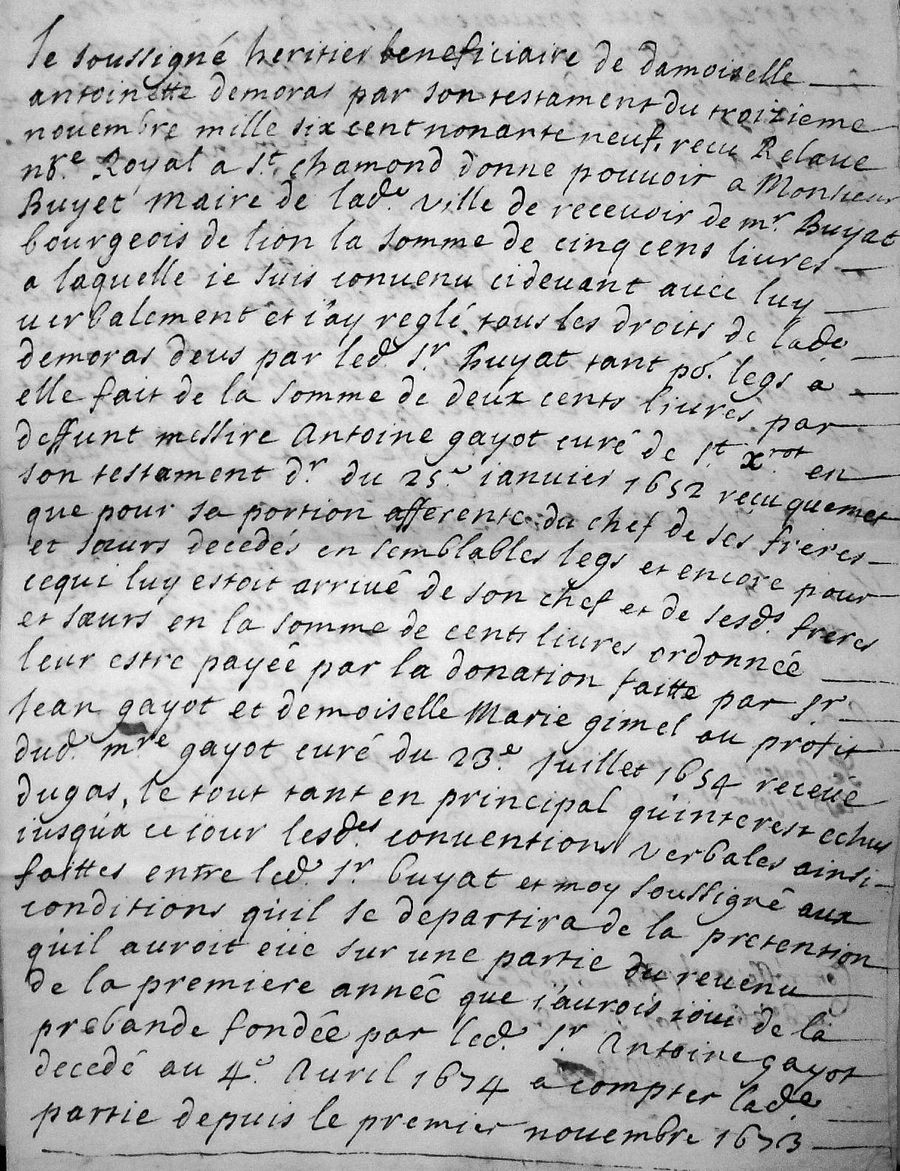 Je soussigné heritier beneficiaire de damoiselle
antoinette demoras par son testament du troizieme
novembre mille six cent nonante neuf, recu Relave
nre. Royal a St. chamond donne pouvoir a Monsieur
Buyet Maire de lade. ville de recevoir de mr. Buyat
bourgeois de lion la somme de cinq cens livres
a laquelle ie suis convenu cidevant avec luy
verbalement et i'ay reglé tous les droits de lade
demoras deus par led. Sr. buyat tant po. legs a
elle fait de la somme de deux cents livres par
deffunt messire Antoine gayot curé de St. xrot en
son testament dr. du 25e ianvier 1652 reçu
que pour sa portion afferente du chef de ses freres
et sœurs decedés en semblables legs et encore pour
cequi luy estoit arrivé de son chef et de sesds. freres
et sœurs en la somme de cent livres ordonnée
leur estre payéé par la donation faitte par Sr
Jean gayot et demoiselle Marie gimel au profit
dud. mre gayot curé du 23e. Juillet 1654 receüe
dugas, le tout tant en principal qu'interest echus
iusqua ce iour lesdes. conventions verbales ainsi
faittes entre led. Sr. buyat et moy soussigné aux
conditions qu'il se departira de la pretention
qu'il auroit eüe sur une partie du revenu
de la premiere annéé que i'aurois ioui de la
prebande fondée par led. Sr. Antoine gayot
decedé au 4e. Avril 1674 a compter lade
partie depuis le premier novembre 1673